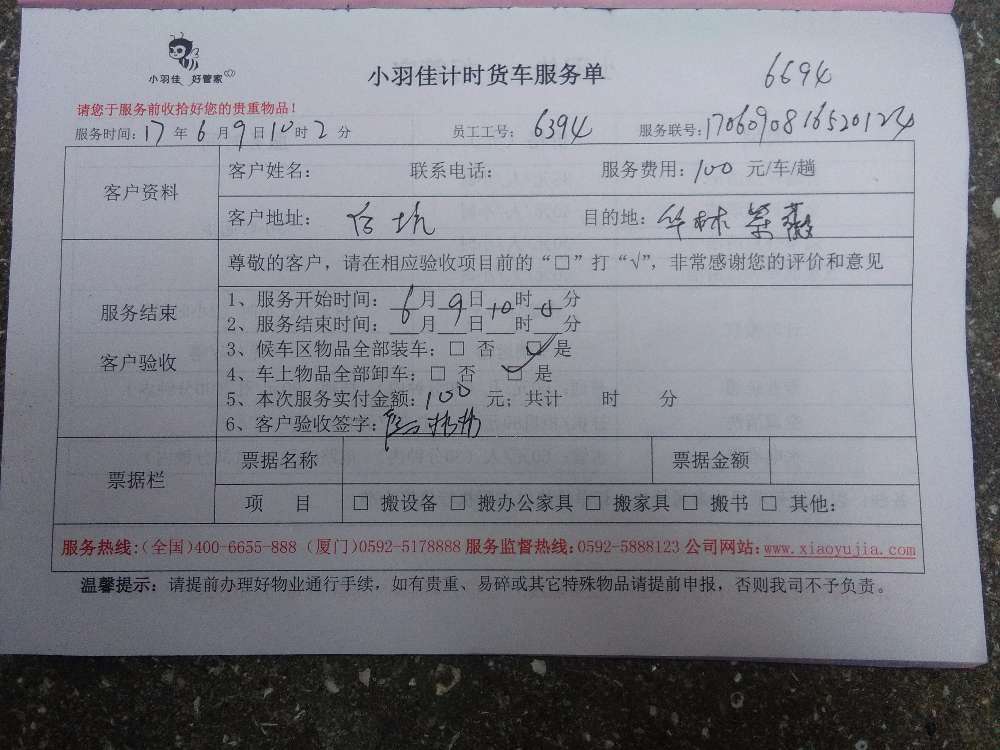 小羽佳 好管家
小羽佳计时货车服务单
6694
请您于服务前收拾好您的贵重物品!
服务时间: 17 年 6 月 9 日 10 时 2 分 员工工号: 6394 服务联号: 17060908165201224
客户资料
客户姓名: 联系电话: 服务费用: 100 元/车/趟
客户地址: 后坑 目的地: 华林紫薇
服务结束
客户验收
尊敬的客户,请在相应验收项目前的“□”打“√”,非常感谢您的评价和意见
1、服务开始时间: 6月 9日 10时 分
2、服务结束时间: 月 日 时 分
3、候车区物品全部装车: □ 否 □ 是
4、车上物品全部卸车: □ 否 □ 是
5、本次服务实付金额: 100 元; 共计 时 分
6、客户验收签字:
票据栏
票据名称 票据金额
项 目 □ 搬设备 □ 搬办公家具 □ 搬家具 □ 搬书 □ 其他:
服务热线:(全国)400-6655-888 (厦门)0592-5178888 服务监督热线:0592-5888123 公司网站:www.xiaoyujia.com
温馨提示: 请提前办理好物业通行手续,如有贵重、易碎或其它特殊物品请提前申报,否则我司不予负责。